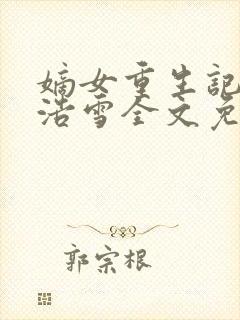 嫡女重生記
浩雪全文免
郭宗根